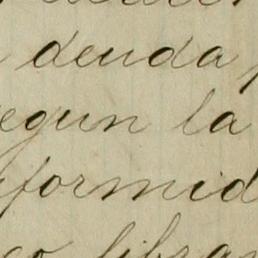 deuda
egun la
formid
co libran